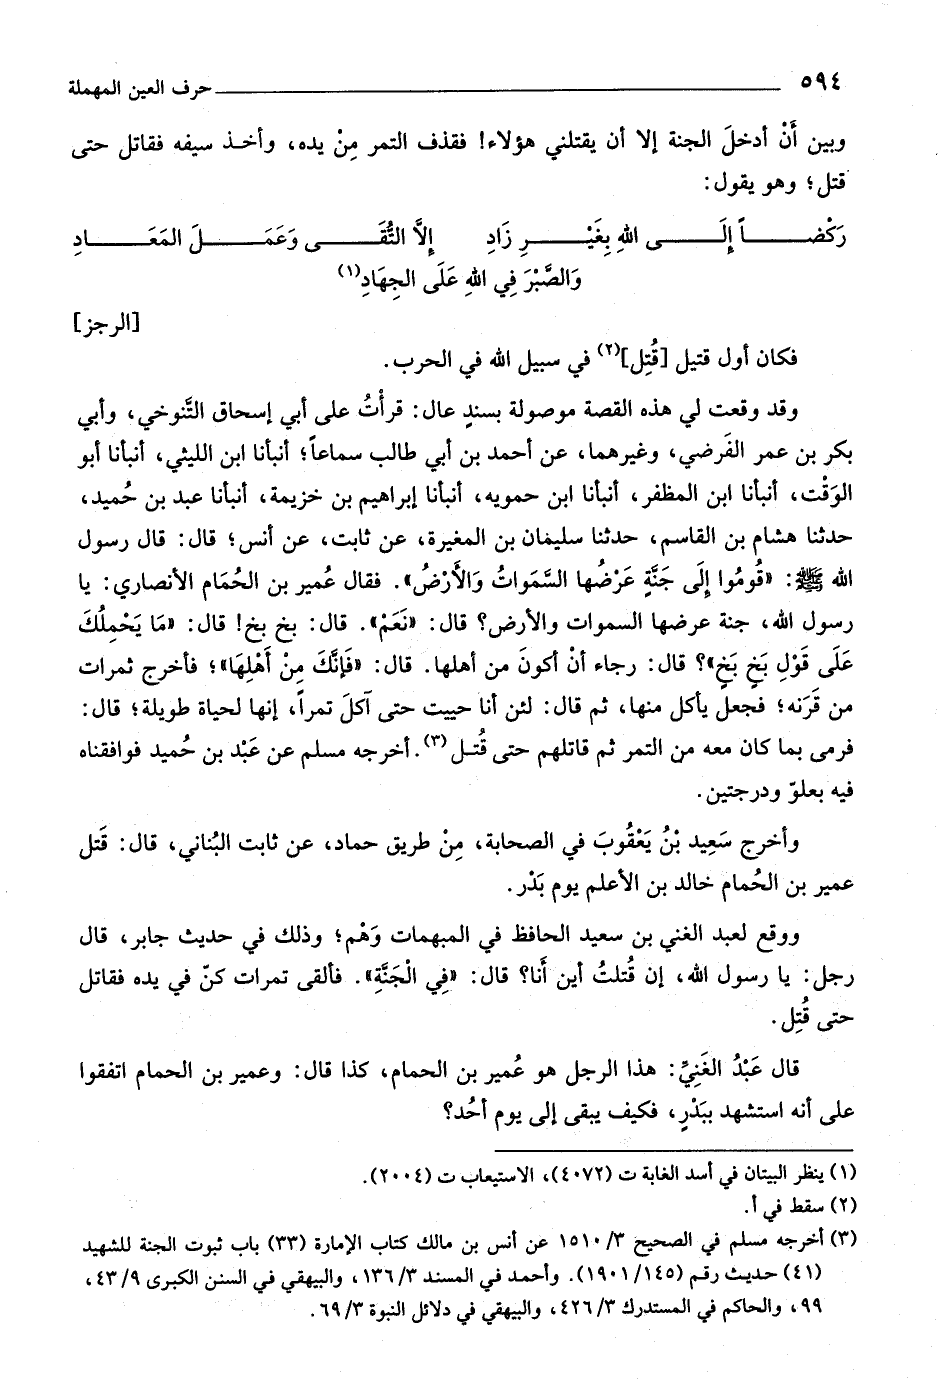 ٥٩٤ حرف العين المهملة
وبين أَنْ أدخلَ الجنة إلا أن يقتلني هؤلاء! فقذف التمر مِنْ يده، وأخـذ سيفه فقاتل حتى
قتل؛ وهو يقول:
رَكْضـــــاً إِلَـــــى اللهِ بِغَيْـــــرِ زَادِ إِلاَّ التُّقَـــــى وَعَمَـــــلَ المَعَـــــادِ
وَالصَّبْرَ فِي اللهِ عَلَى الجِهَادِ(١)
[الرجز]
فكان أول قتيل [قُتِل](٢) في سبيل الله في الحرب.
وقد وقعت لي هذه القصة موصولة بسندٍ عال: قرأْتُ على أبي إسحاق التَّنوخي، وأبي
بكر بن عمر الفَرضي، وغيرهما، عن أحمد بن أبي طالب سماعاً؛ أنبأنا ابن الليثي، أنبأنا أبو
الوَقْت، أنبأنا ابن المظفر، أنبأنا ابن حمويه، أنبأنا إبراهيم بن خزيمة، أنبأنا عبد بن حُميد،
حدثنا هشام بن القاسم، حدثنا سليمان بن المغيرة، عن ثابت، عن أنس؛ قال: قال رسول
الله ﷺ: «قُومُوا إِلَى جَنَّةٍ عَرْضُها السَّمَواتُ وَالأَرْضُ». فقال عُمير بن الحُمَام الأنصاري: يا
رسول الله، جنة عرضها السموات والأرض؟ قال: «نَعَمْ». قال: بخ بخ! قال: «مَا يَحْمِلُكَ
عَلَى قَوْلِ بَخٍ بَخٍ»؟ قال: رجاء أنْ أكونَ من أهلها. قال: «فَإِنَّكَ مِنْ أَهْلِهَا»؛ فأخرج تمرات
من قَرَنه؛ فجعل يأكل منها، ثم قال: لئن أنا حييت حتى آكلَ تمراً، إنها لحياة طويلة؛ قال:
فرمى بما كان معه من التمر ثم قاتلهم حتى قُتـل(٣). أخرجه مسلم عن عَبْد بن حُميد فوافقناه
فيه بعلوّ ودرجتين.
وأخرج سَعِيد بْنُ يَعْقُوبَ في الصحابة، مِنْ طريق حماد، عن ثابت البُناني، قال: قَتل
عمير بن الحُمام خالد بن الأعلم يوم بَدْر.
ووقع لعبد الغني بن سعيد الحافظ في المبهمات وَهْم؛ وذلك في حديث جابر، قال
رجل: يا رسول الله، إن قُتلتُ أين أَنا؟ قال: «فِي الْجَنَّةِ». فألقى تمرات كنّ في يده فقاتل
حتى قُتِل.
قال عَبْدُ الغَنِيِّ: هذا الرجل هو عُمير بن الحمام، كذا قال: وعمير بن الحمام اتفقوا
على أنه استشهد ببَدْرٍ، فكيف يبقى إلى يوم أُحُد؟
(١) ينظر البيتان في أسد الغابة ت (٤٠٧٢)، الاستيعاب ت (٢٠٠٤).
(٢) سقط في أ.
(٣) أخرجه مسلم في الصحيح ٣/ ١٥١٠ عن أنس بن مالك كتاب الإمارة (٣٣) باب ثبوت الجنة للشهيد
(٤١) حديث رقم (١٤٥/ ١٩٠١). وأحمد في المسند ٣/ ١٣٦، والبيهقي في السنن الكبرى ٩/ ٤٣،
٩٩، والحاكم في المستدرك ٣/ ٤٢٦، والبيهقي في دلائل النبوة ٣/ ٦٩.